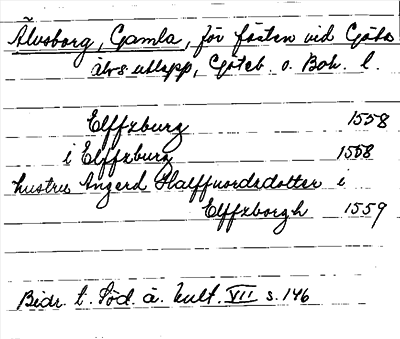 Älvsborg, Gamla, för fästen vid Göta
älvs utlopp, Göteb. o. Boh. l.
Elffzburg 1558
i Elffzburg 1558
hustru Angerd Halffuordzdotter i
Elffzborgh 1559
Bidr. t. Göd. ä. kult. VII s. 146